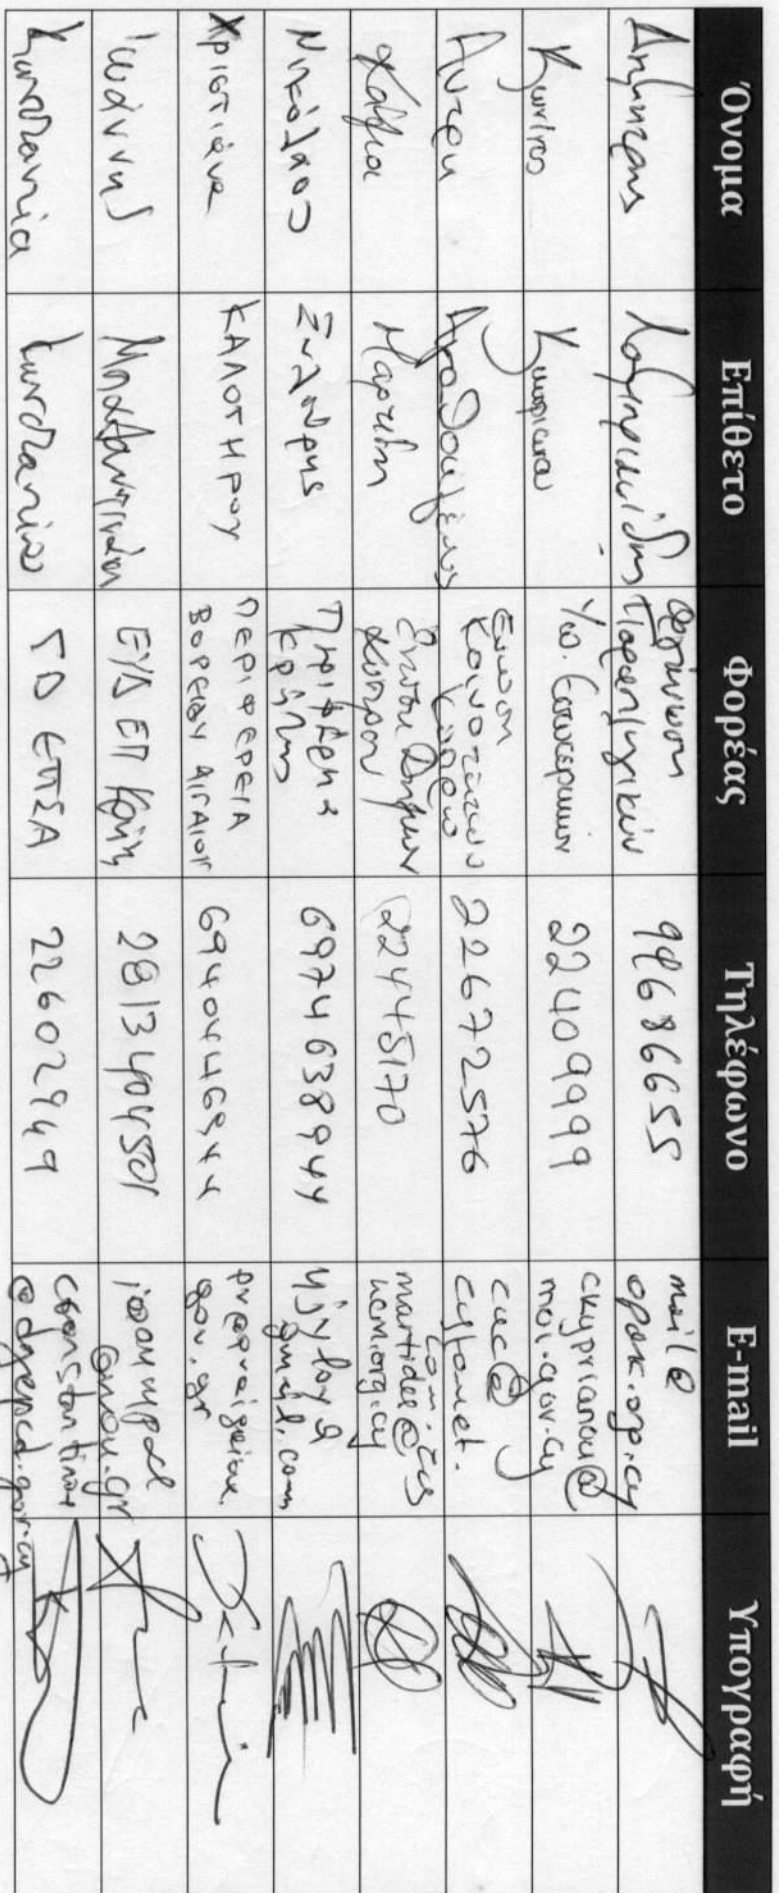 Όνομα Επίθετο Φορέας Τηλέφωνο E-mail Υπογραφή
Δημήτρης Λαμπριανίδης Οργάνωση
Παραπληγικών mail@
opak.org.cy
Κωνίνος Κυπριανού Υπ. Εσωτερικών 22409999 ckyprianou@
moi.gov.cy
Άντρη Ένωση
Κοινοτήτων
22672576 cuc@
cytanet.
com.cy
Μαρτίδη Ένωση Δήμων
Κύπρου 22445170 martides@
ucm.org.cy
Νικόλαος Ξυλούρης Περιφέρεια
Κρήτης 6974638944
gmail.com
Χριστιάνα ΚΑΛΟΓΗΡΟΥ ΠΕΡΙΦΕΡΕΙΑ
ΒΟΡΕΙΟΥ ΑΙΓΑΙΟΥ 6940446944
gov.gr
Ιωάννης ΕΥΔ ΕΠ Κρήτης 2813404501
@mou.gr
Κωνσταντία Κωνσταντίνου ΓΔ ΕΠΣΑ 22602949 cconstantinou
@dgepcd.gov.cy